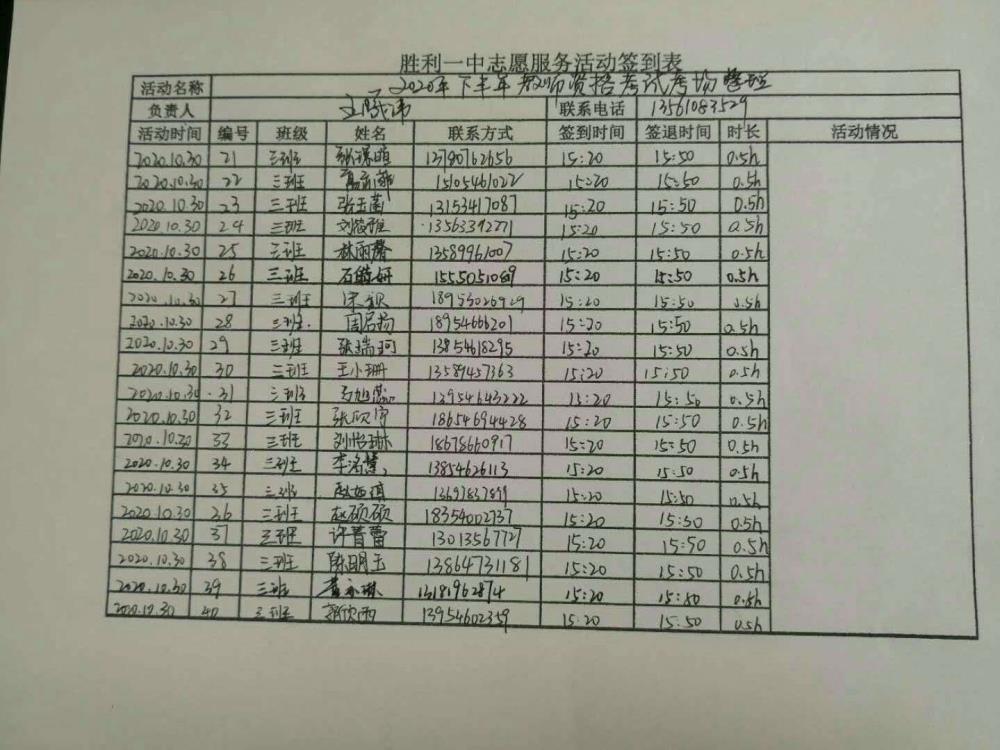 胜利一中志愿服务活动签到表
活动名称 2020年下半年教师资格考试考场整理
负责人 联系电话 13561083529
活动时间 编号 班级 姓名 联系方式 签到时间 签退时间 时长 活动情况
2020.10.30 21 三班 13780762656 15:20 15:50 0.5h
2020.10.30 22 三班 15105461022 15:20 15:50 0.5h
2020.10.30 23 三班 张玉菌 13153417087 15:20 15:50 0.5h
2020.10.30 24 三班 13563392771 15:20 15:50 0.5h
2020.10.30 25 三班 林雨馨 13589961007 15:20 15:50 0.5h
2020.10.30 26 三班 15:20 15:50 0.5h
2020.10.30 27 三班 15:20 15:50 0.5h
2020.10.30 28 三班. 周启扬 18954666201 15:20 15:50 0.5h
2020.10.30 29 三班 张瑞珂 13854618295 15:20 15:50 0.5h
2020.10.30 30 三班 王小珊 13589457363 15:20 15:50 0.5h
2020.10.30 31 三班 马旭蕊 15:20 15:50 0.5h
2020.10.30 32 三班 张欣宇 18654694428 15:20 15:50 0.5h
2020.10.30 33 三班 18678660917 15:20 15:50 0.5h
2020.10.30 34 三班 李洺慧 13854626113 15:20 15:50 0.5h
2020.10.30 35 三班 15:20 15:50 0.5h
2020.10.30 三班 赵硕硕 18354002737 15:20 15:50 0.5h
2020.10.30 37 三班 许菁蕾 13013567727 15:20 15:50 0.5h
2020.10.30 38 三班 陈明玉 13864731181 15:20 15:50 0.5h
2020.10.30 39 三班 13181962874 15:20 15:50 0.5h
2020.10.30 40 三班 郭欣雨 13954602359 15:20 15:50 0.5h